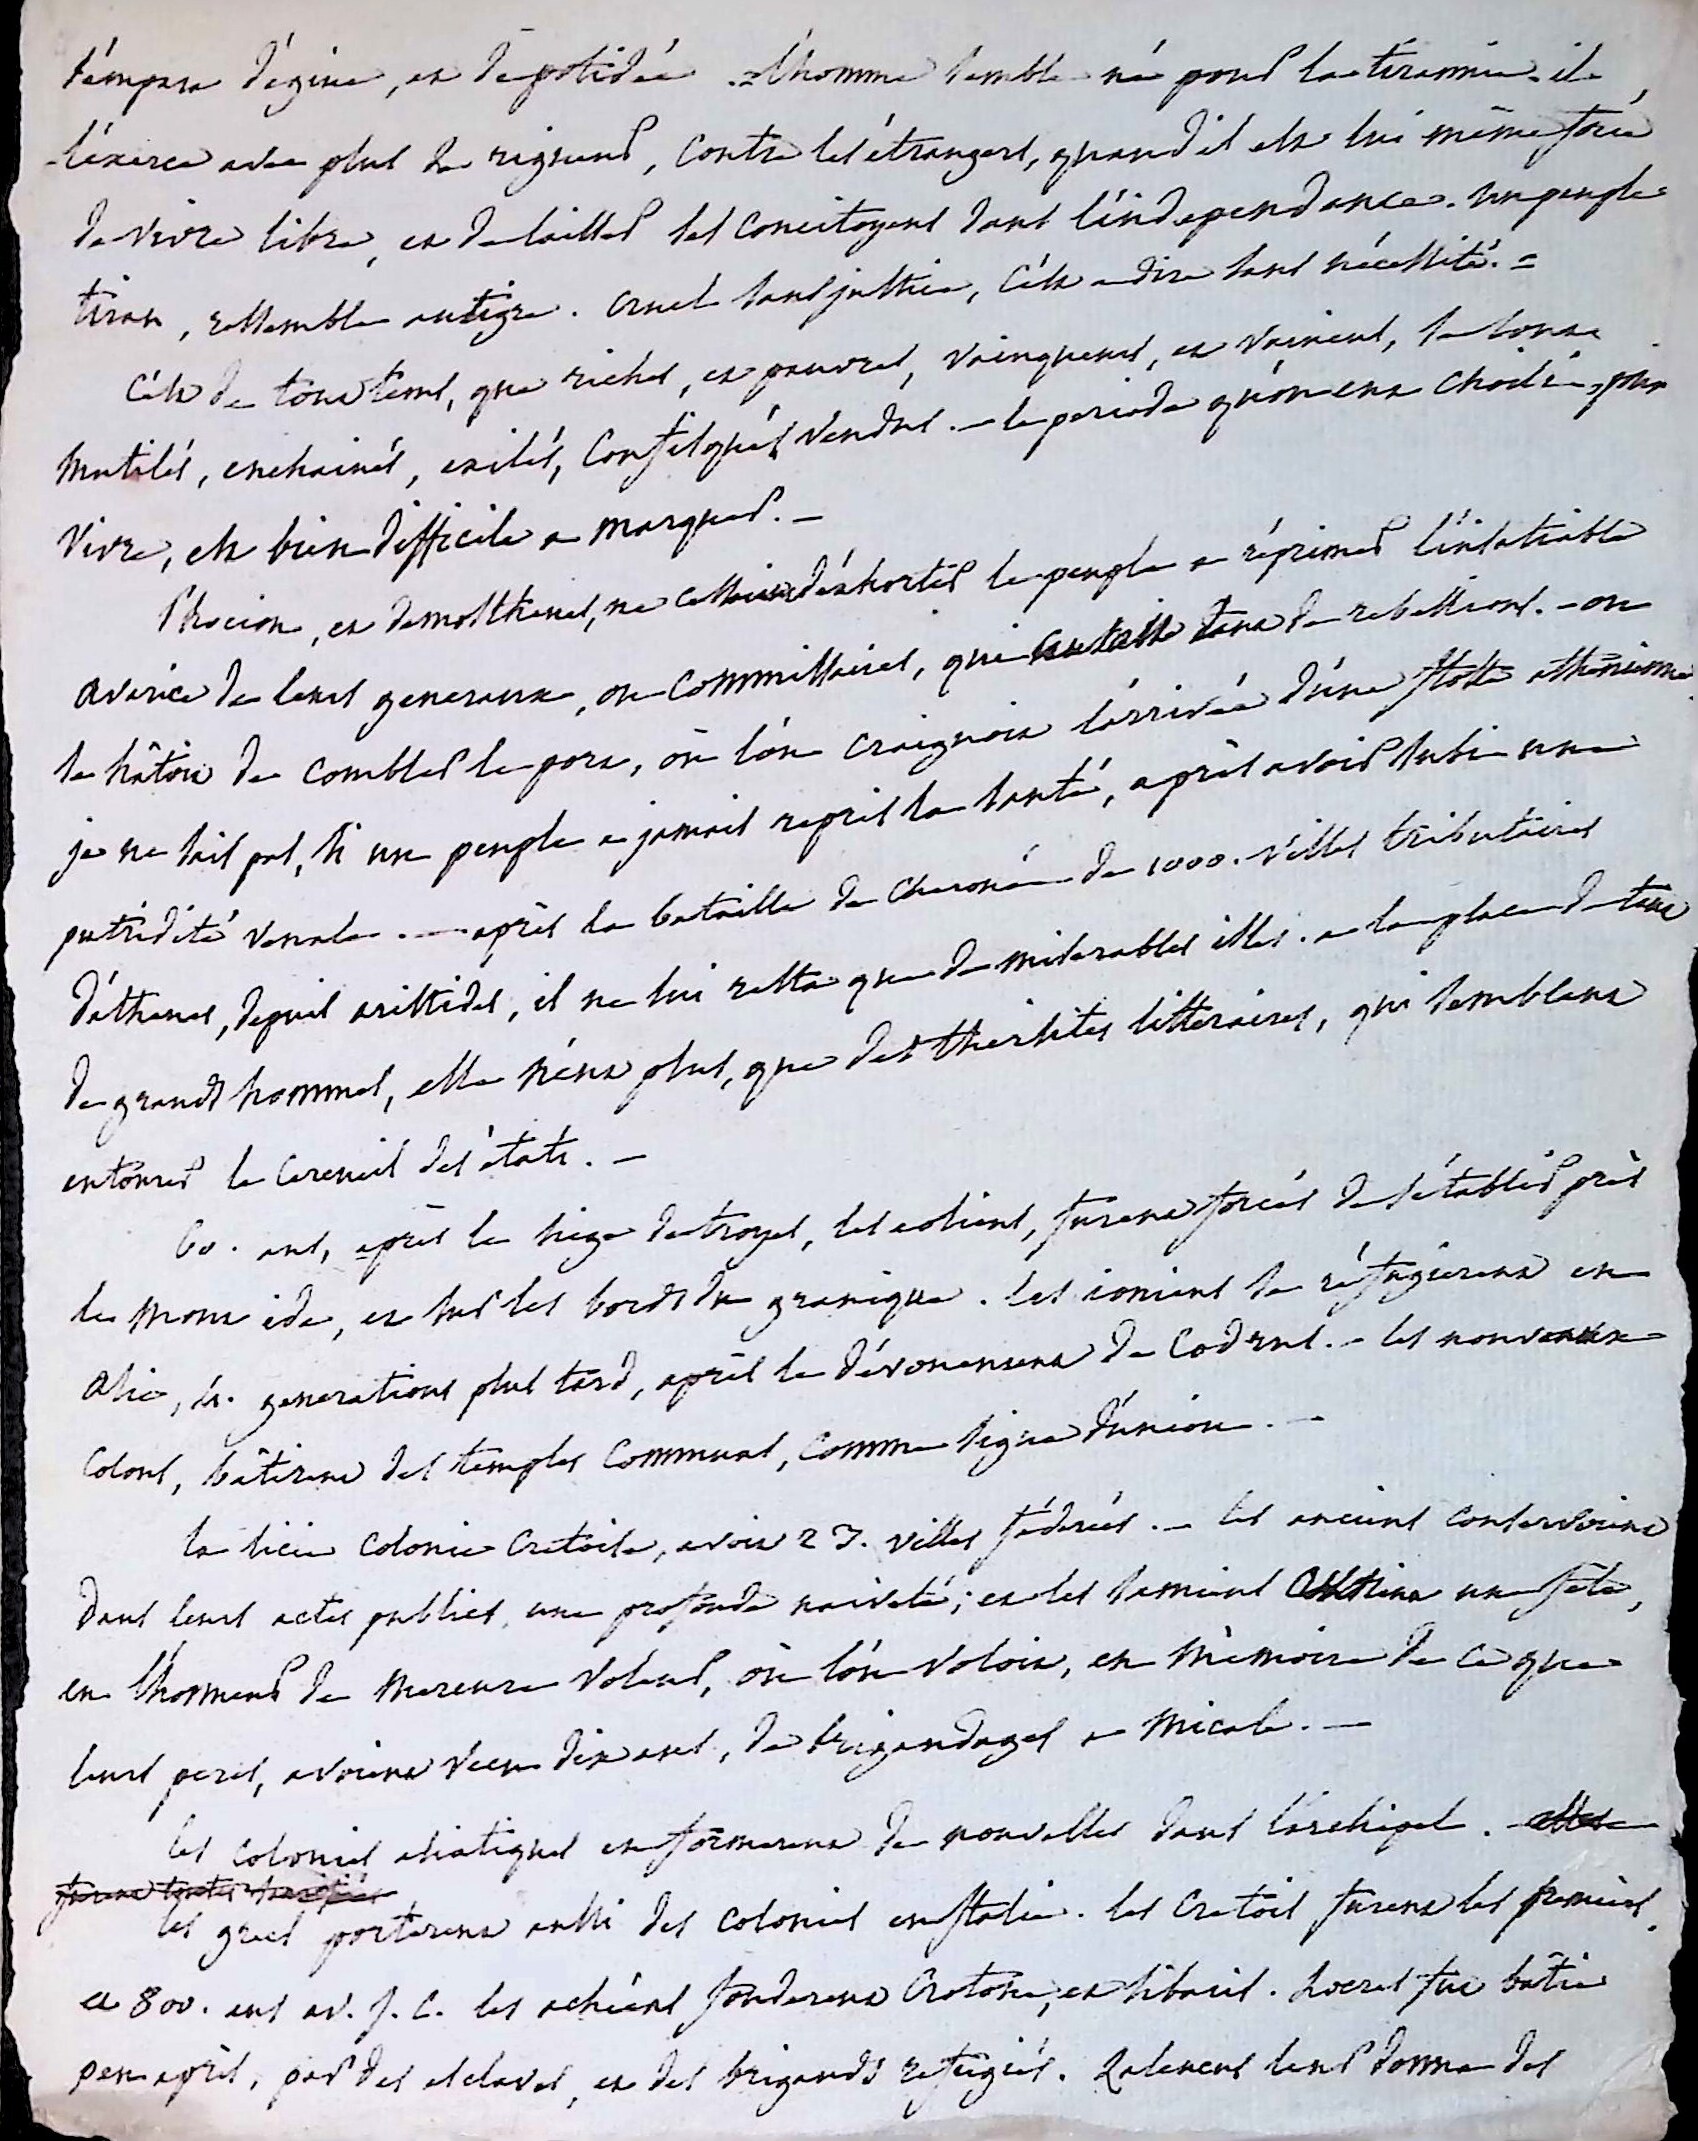 s'empara d'égine, et de potidée. = l'homme semble né pour la tirannie. il
l'éxerce avec plus de rigueur, contre les étrangers, quand il est lui même forcé
de vivre libre, et de laisser ses concitoyens dans l'indépendance. un peuple
tiran, ressemble au tigre. cruel sans justice, c'est a dire sans nécessité. =
C'est de tous tems, que riches, et pauvres, vainqueurs, et vaincus, se sont
mutilés, enchainés, exilés, confisqués, vendus. — la periode qu'on eut choisie, pour
vivre, est bien difficile a marquer. —
Phocion, et demosthenes, ne cessoient d'éxhorter le peuple a réprimer l'insatiable
avarice de leurs generaux, ou commissaires, qui tant de rebellions. — on
se hâtoit de combler le port, où l'on craignoit l'arrivée d'une flotte athenienne.
je ne sais pas, si un peuple a jamais repris la santé, après avoir subi une
putridité venale. — après la bataille de cheronée de 1000. villes tributaires
d'athenes, depuis aristides, il ne lui resta que de miserables isles. a la place de tant
de grands hommes, elle n'eut plus, que des thersites litteraires, qui semblent
entourer le cercueil des états. —
60. ans, après le siege de troyes, les eoliens, furent forcés de s'établir près
le mont ida, et sur les bords du granique. les ioniens se réfugierent en
asie, generations plus tard, après le dévouement de Codrus. — les nouveaux
colons, bâtirent des temples communs, comme signe d'union. —
la licie colonie cretoise, avoit 23. villes féderées. — les anciens conservoient
dans leurs actes publics, une profonde naïveté; et les samiens une fête,
en l'honneur de mercure voleur, où l'on voloit, en mémoire de ce que
leurs peres, avoient vecu dix ans, de brigandages a Micale. —
les colonies asiatiques en formerent de nouvelles dans l'archipel. elles
furent toutes
les grecs porterent aussi des colonies en italie. les Cretois furent les premiers.
et 800. ans av. J. C. les achéens fonderent Crotone, et sibaris. Locres fut bâtie
peu après, par des esclaves, et des brigands refugiés. Zaleucus leur donna des